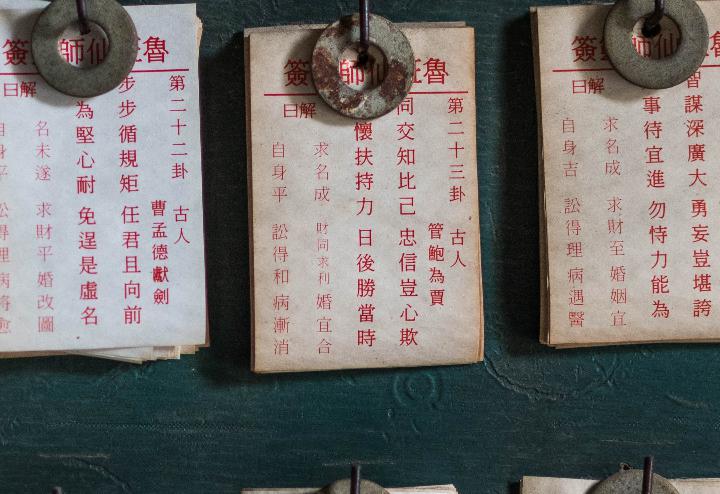 魯仙師簽
第二十二卦 古人
曹孟德獻劍
步步循規矩 任君且向前
為堅心耐 免逞是虛名
解曰
名未遂 求財平 婚改圖
自身平 訟得理 病將愈
魯班仙師簽
第二十三卦 古人
管鮑為賈
同交知比己 忠信豈心欺
懷扶持力 日後勝當時
解曰
求名成 財同求利 婚宜合
自身平 訟得和 病漸消
仙師簽
智謀深廣大 勇妄豈堪誇
事待宜進 勿恃力能為
解曰
求名成 求財至 婚姻宜
自身吉 訟得理 病遇醫